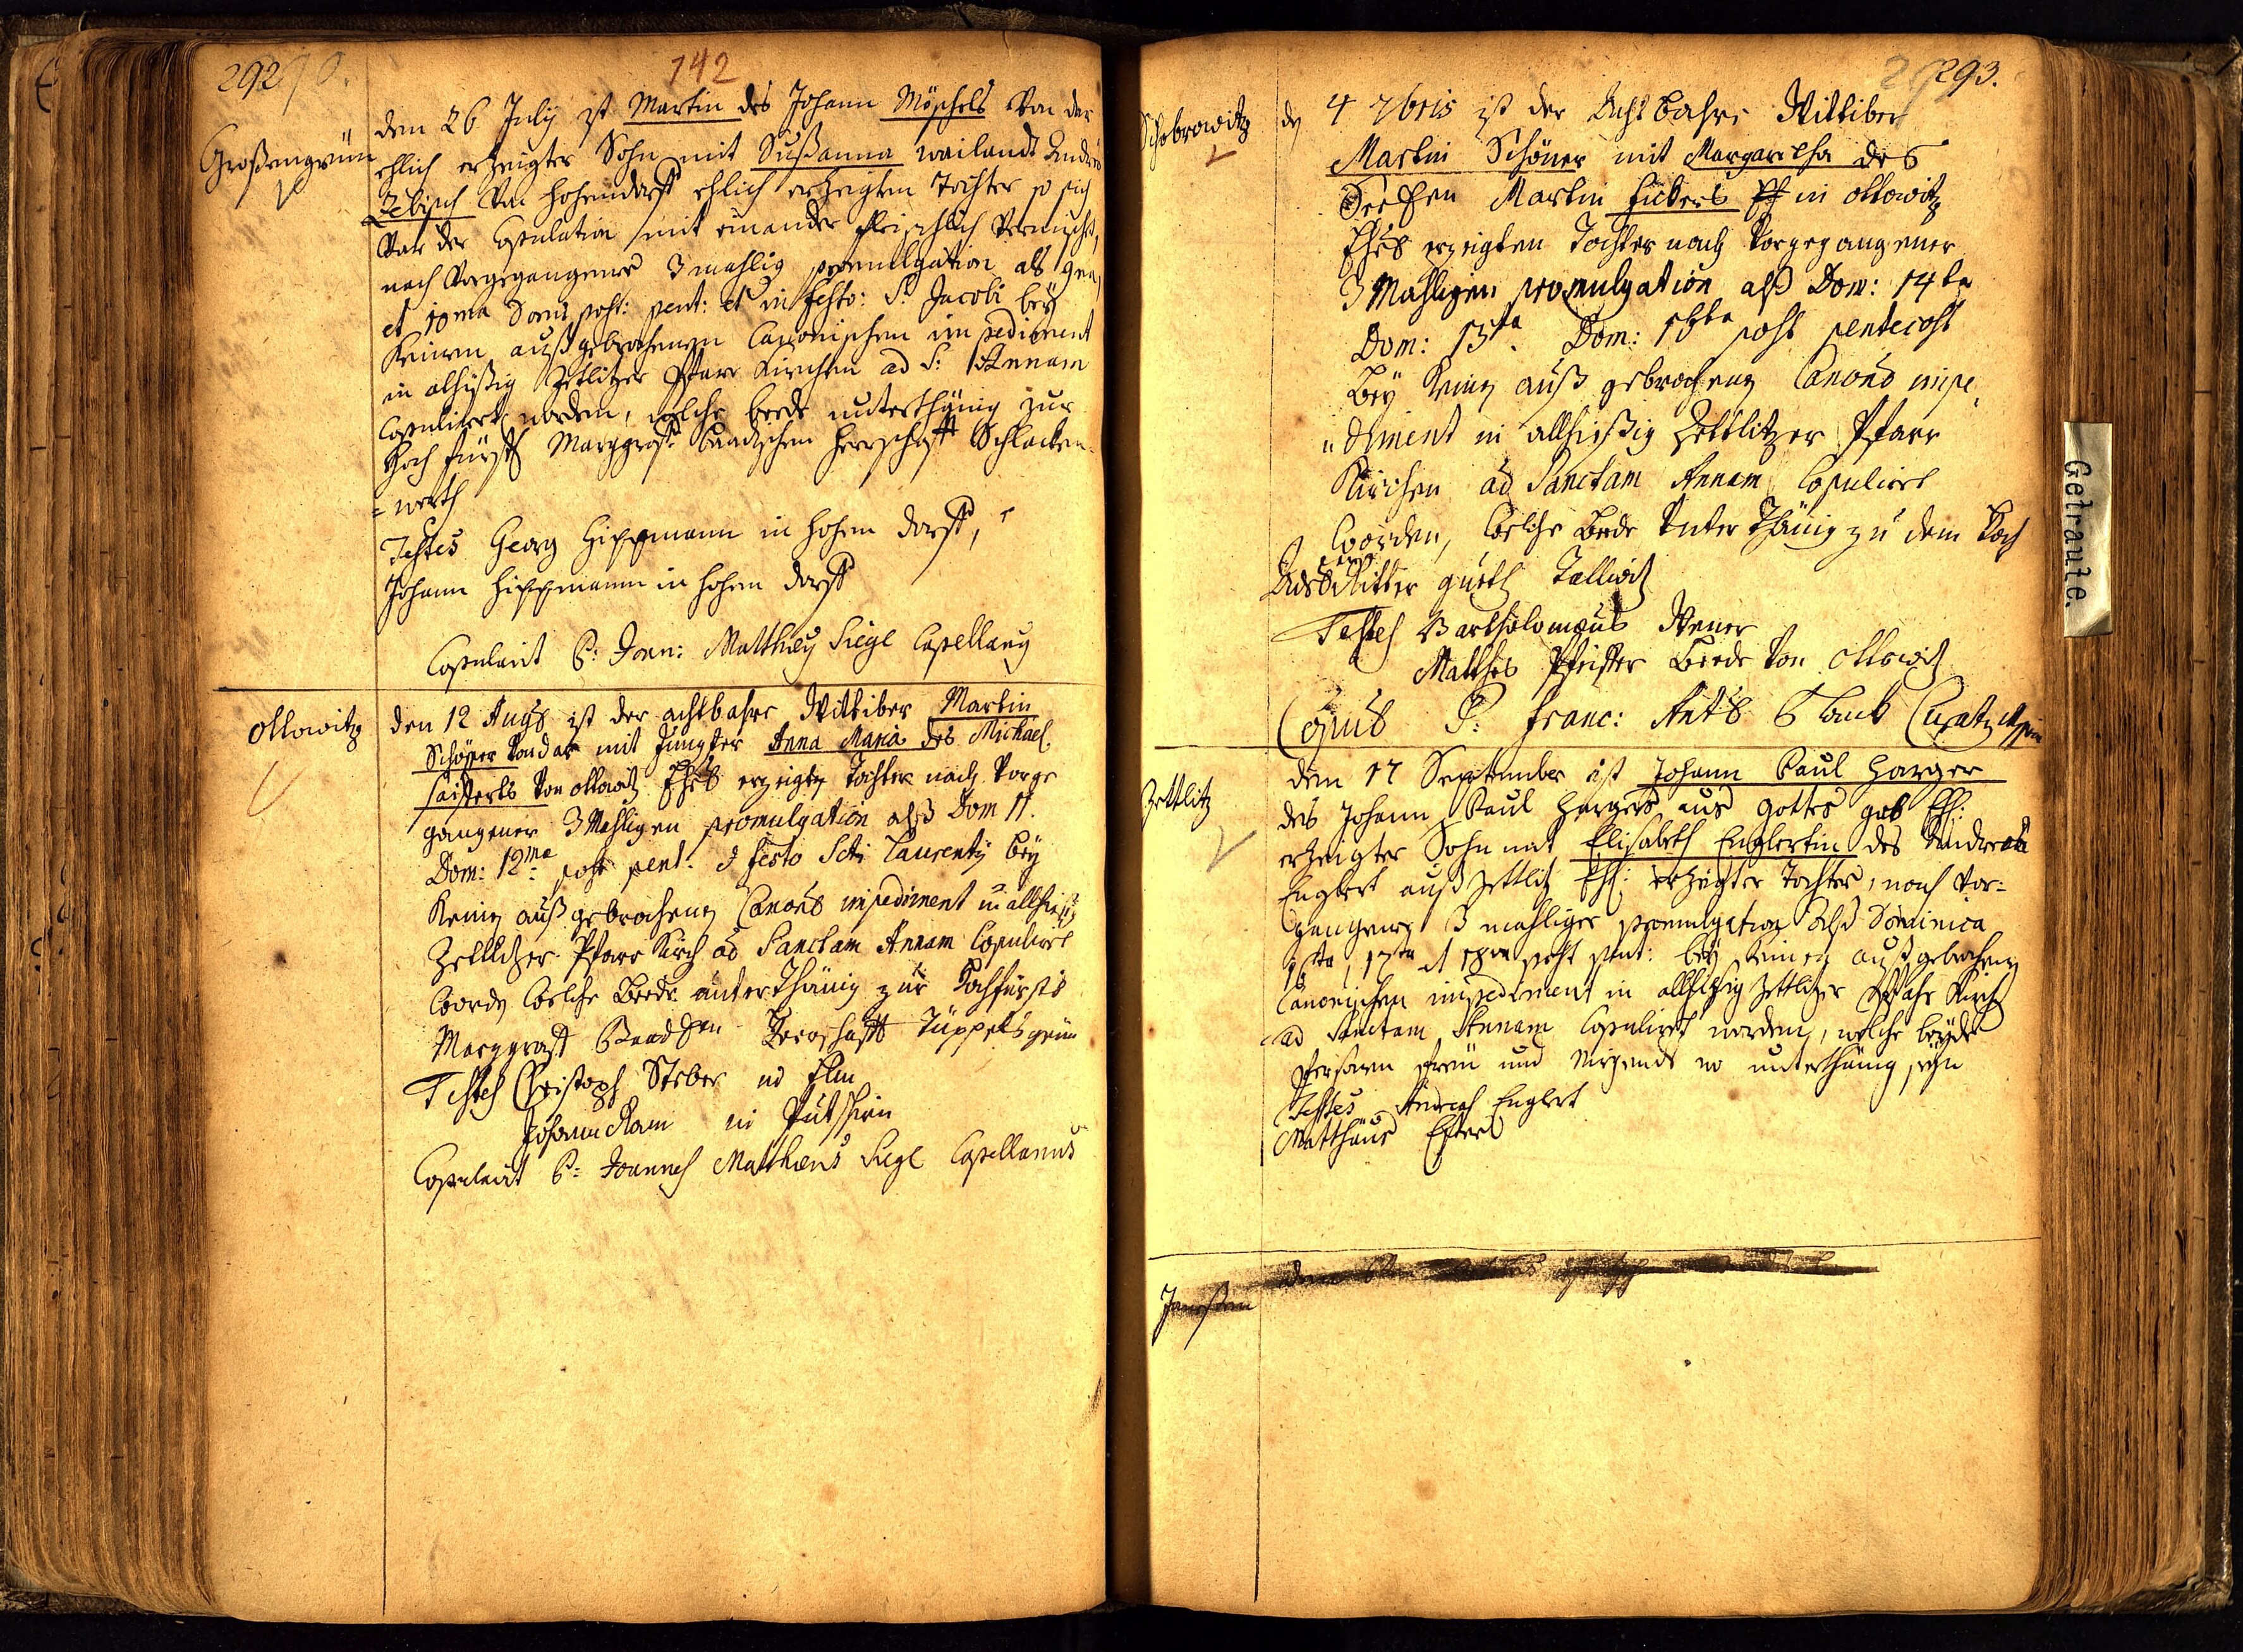 292
142
Großengrün
den 26 July ist Martin des Johann Möschels Von der
ehlich erzeigter Sohn mit Sußanna wailandt Andreä
Zebisch Von Hohendorff ehlich erzeigten Tochter so sich
Vor der Copulation mit einander fleischlich Vermischt,
nach Vorgegangener 3 mahlig promulgation als 9na,
et 10ma Domi post: pent: et in festo: S: Jacobi bey
Keinem außgebrochenen Canonischen impediment
in alhißig Zetlitzer Pfarr Kirchen ad S: Annam
Copulieret worden, welche beede unterthänig zur
Hoch fürstl Marggraff: Baadischen Herrschafft Schlacken-
=werth
Testes Georg Hippmann in Hohen dorff,
Johann Hippmann in Hohen dorff
Copulavit P: Joan: Matthæy Siegl Capellany
Ottowitz
den 12 Augs ist der achtbahre Wittiber Martin
Schöner Von dar mit Jungfer Anna Maria des Michael
Saifferts Von Ottowitz Ehes erzeigten Tochter nach Vorge
gangener 3 Mahligen promulgation alß Dom 11.
Dom: 12ma post pent: & festo Scti Laurentÿ bey
Keinen außgebrochenen Canons impediment in allhießig
Zettlitzer Pfarr Kirch ad Sanctam Annam Copuliret
worden welche Beede unterthänig zur Hochfürstl
Marggraff Baadschen Herrschafft Tüppelsgrün
Testes Christoph Steber in Elm
Johann Ram in Putschirn
Copulavit P: Joannes Matthæus Siegl Capellanus
293.
Schobrowitz
den 4 7bris ist der Acht Bahre Wittiber
Martin Schöner mit Margaretha des
Martin Fickers in Ottowitz
Ehes erzeigten Tochter nach Vorgegangener
3 Mahligen promulgation alß Dom: 14ta
Dom: 15ta Dom: 16ta post pentecost
Bey Keinen auß gebrochenen Canons impe,
"diment in allhießig Zettlitzer Pfarr
Kirchen ad Sanctam Annam Copuliret
worden, welche Beede Unter Thänig zu dem Hoch
Ritter gueth Tallwitz
Testes Bartholomæus Wener
Matthes Pfeiffer Beede Von Ottowitz
Copus P: Franc: Ants
Zettlitz
den 17 September ist Johann Paul Harger
des Johann Paul Hargers aus Gottes gab Ehl:
erzeigter Sohn mit Elisabeth Englertin des Andreas
Englert auß Zettlitz Ehl: erzeigter Tochter, nach Vor=
gangener 3 mahliger promulgation alß Dominica
16ta, 17ma et 18va post pent: bey Keinen außgebrochenen
Canonischen impediment in allhißig Zettlitzer Pfahr Kirch
ad Sanctam Annam Copuliret worden, welche beyde
Persohnen freü und Nirgends wo unterthänig seyn
Testes Andreas Englert
Matthäus
Getraute.